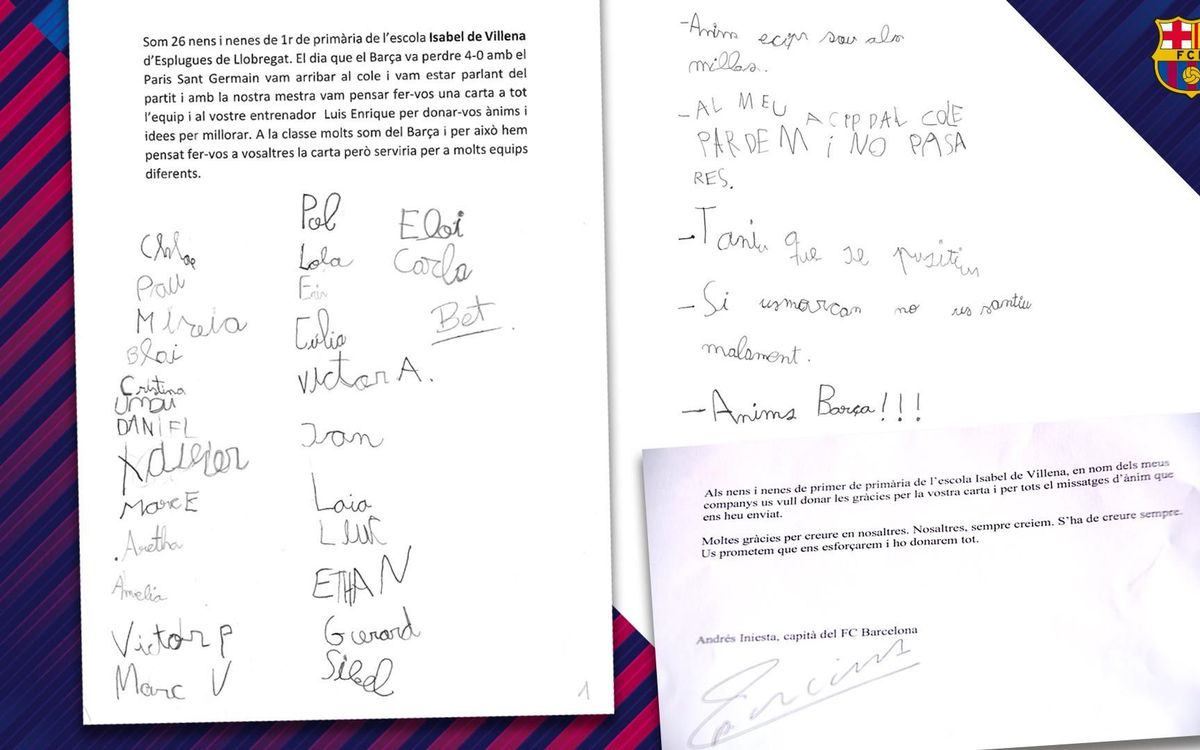 Som 26 nens i nenes de 1r de primària de l'escola Isabel de Villena
d'Esplugues de Llobregat. El dia que el Barça va perdre 4-0 amb el
Paris Sant Germain vam arribar al cole i vam estar parlant del
partit i amb la nostra mestra vam pensar fer-vos una carta a tot
l'equip i al vostre entrenador Luis Enrique per donar-vos ànims i
idees per millorar. A la classe molts som del Barça i per això hem
pensat fer-vos a vosaltres la carta però serviria per a molts equips
diferents.
Chloe
Pau
Mireia
Blai
Cristina
DANIEL
Xavier
MARC E
Aretha
Amelia
Victor P
Marc V
Pol
Lola
Enis
Júlia
VICTOR A.
Ivan
Laia
LLUC
ETHAN
Gerard
Sibel
Eloi
Carla
Bet
1
-Anim ecip sou als
millos.
-AL MEU ACIP DAL COLE
PARDEM i NO PASA
RES.
-Taniu que se pusitius
-Si usmarcan no us santiu
malament.
-Anims Barça!!!
FCB
Als nens i nenes de primer de primària de l'escola Isabel de Villena, en nom dels meus
companys us vull donar les gràcies per la vostra carta i per tots el missatges d'ànim que
ens heu enviat.
Moltes gràcies per creure en nosaltres. Nosaltres, sempre creiem. S'ha de creure sempre.
Us prometem que ens esforçarem i ho donarem tot.
Andrés Iniesta, capità del FC Barcelona